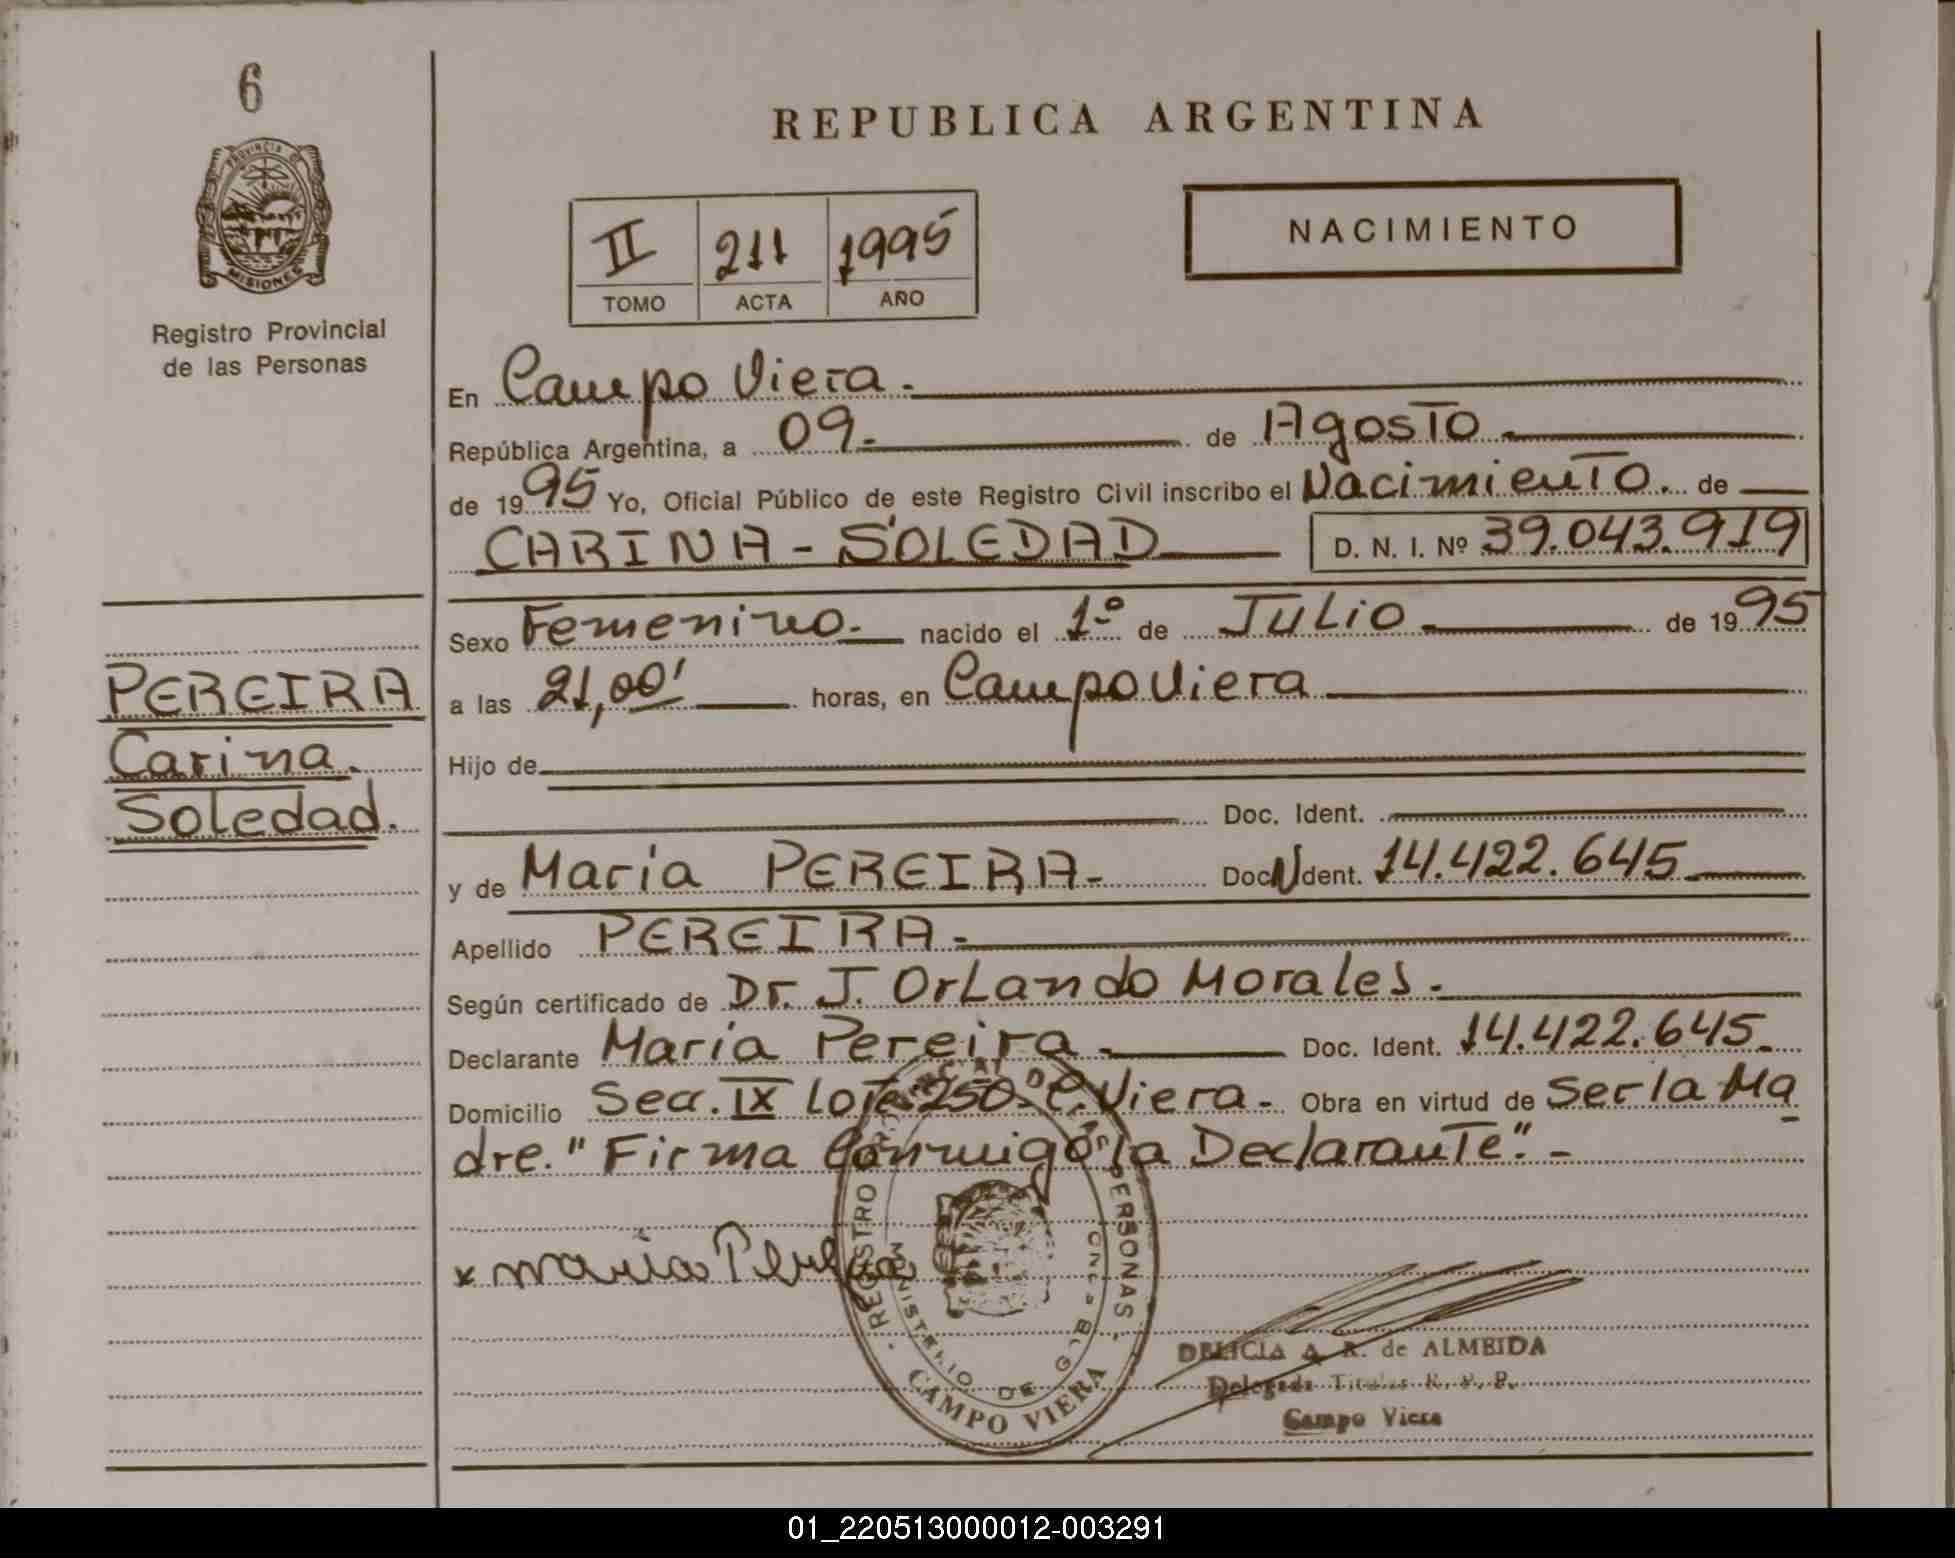 6
PROVINCIA DE
MISIONES
Registro Provincial
de las Personas
PEREIRA
Carina.
Soledad.
REPUBLICA ARGENTINA
II 211 1995
TOMO ACTA AÑO
NACIMIENTO
En Campo Viera.
República Argentina, a 09. de Agosto
de 1995 Yo, Oficial Público de este Registro Civil inscribo el Nacimiento. de
CARINA - SOLEDAD D. N. I. Nº 39.043.919
Sexo Femenino. nacido el 1º de Julio de 1995
a las 21,00' horas, en Campo Viera
Hijo de
Doc. Ident.
y de María PEREIRA - Doc N dent. 14.422.645
Apellido PEREIRA -
Según certificado de Dr. J. Orlando Morales.
Declarante María Pereira - Doc. Ident. 14.422.645.
Domicilio Secc. IX Lote 250 - C. Viera - Obra en virtud de Ser la Ma
dre. "Firma Conmigo la Declarante". -
x maria Pereira
REGISTRO PERSONAS
MINISTERIO DE GOB
CAMPO VIERA
DELICIA A. R. de ALMEIDA
Delegada Titular R. P. P.
Campo Viera
01_220513000012-003291